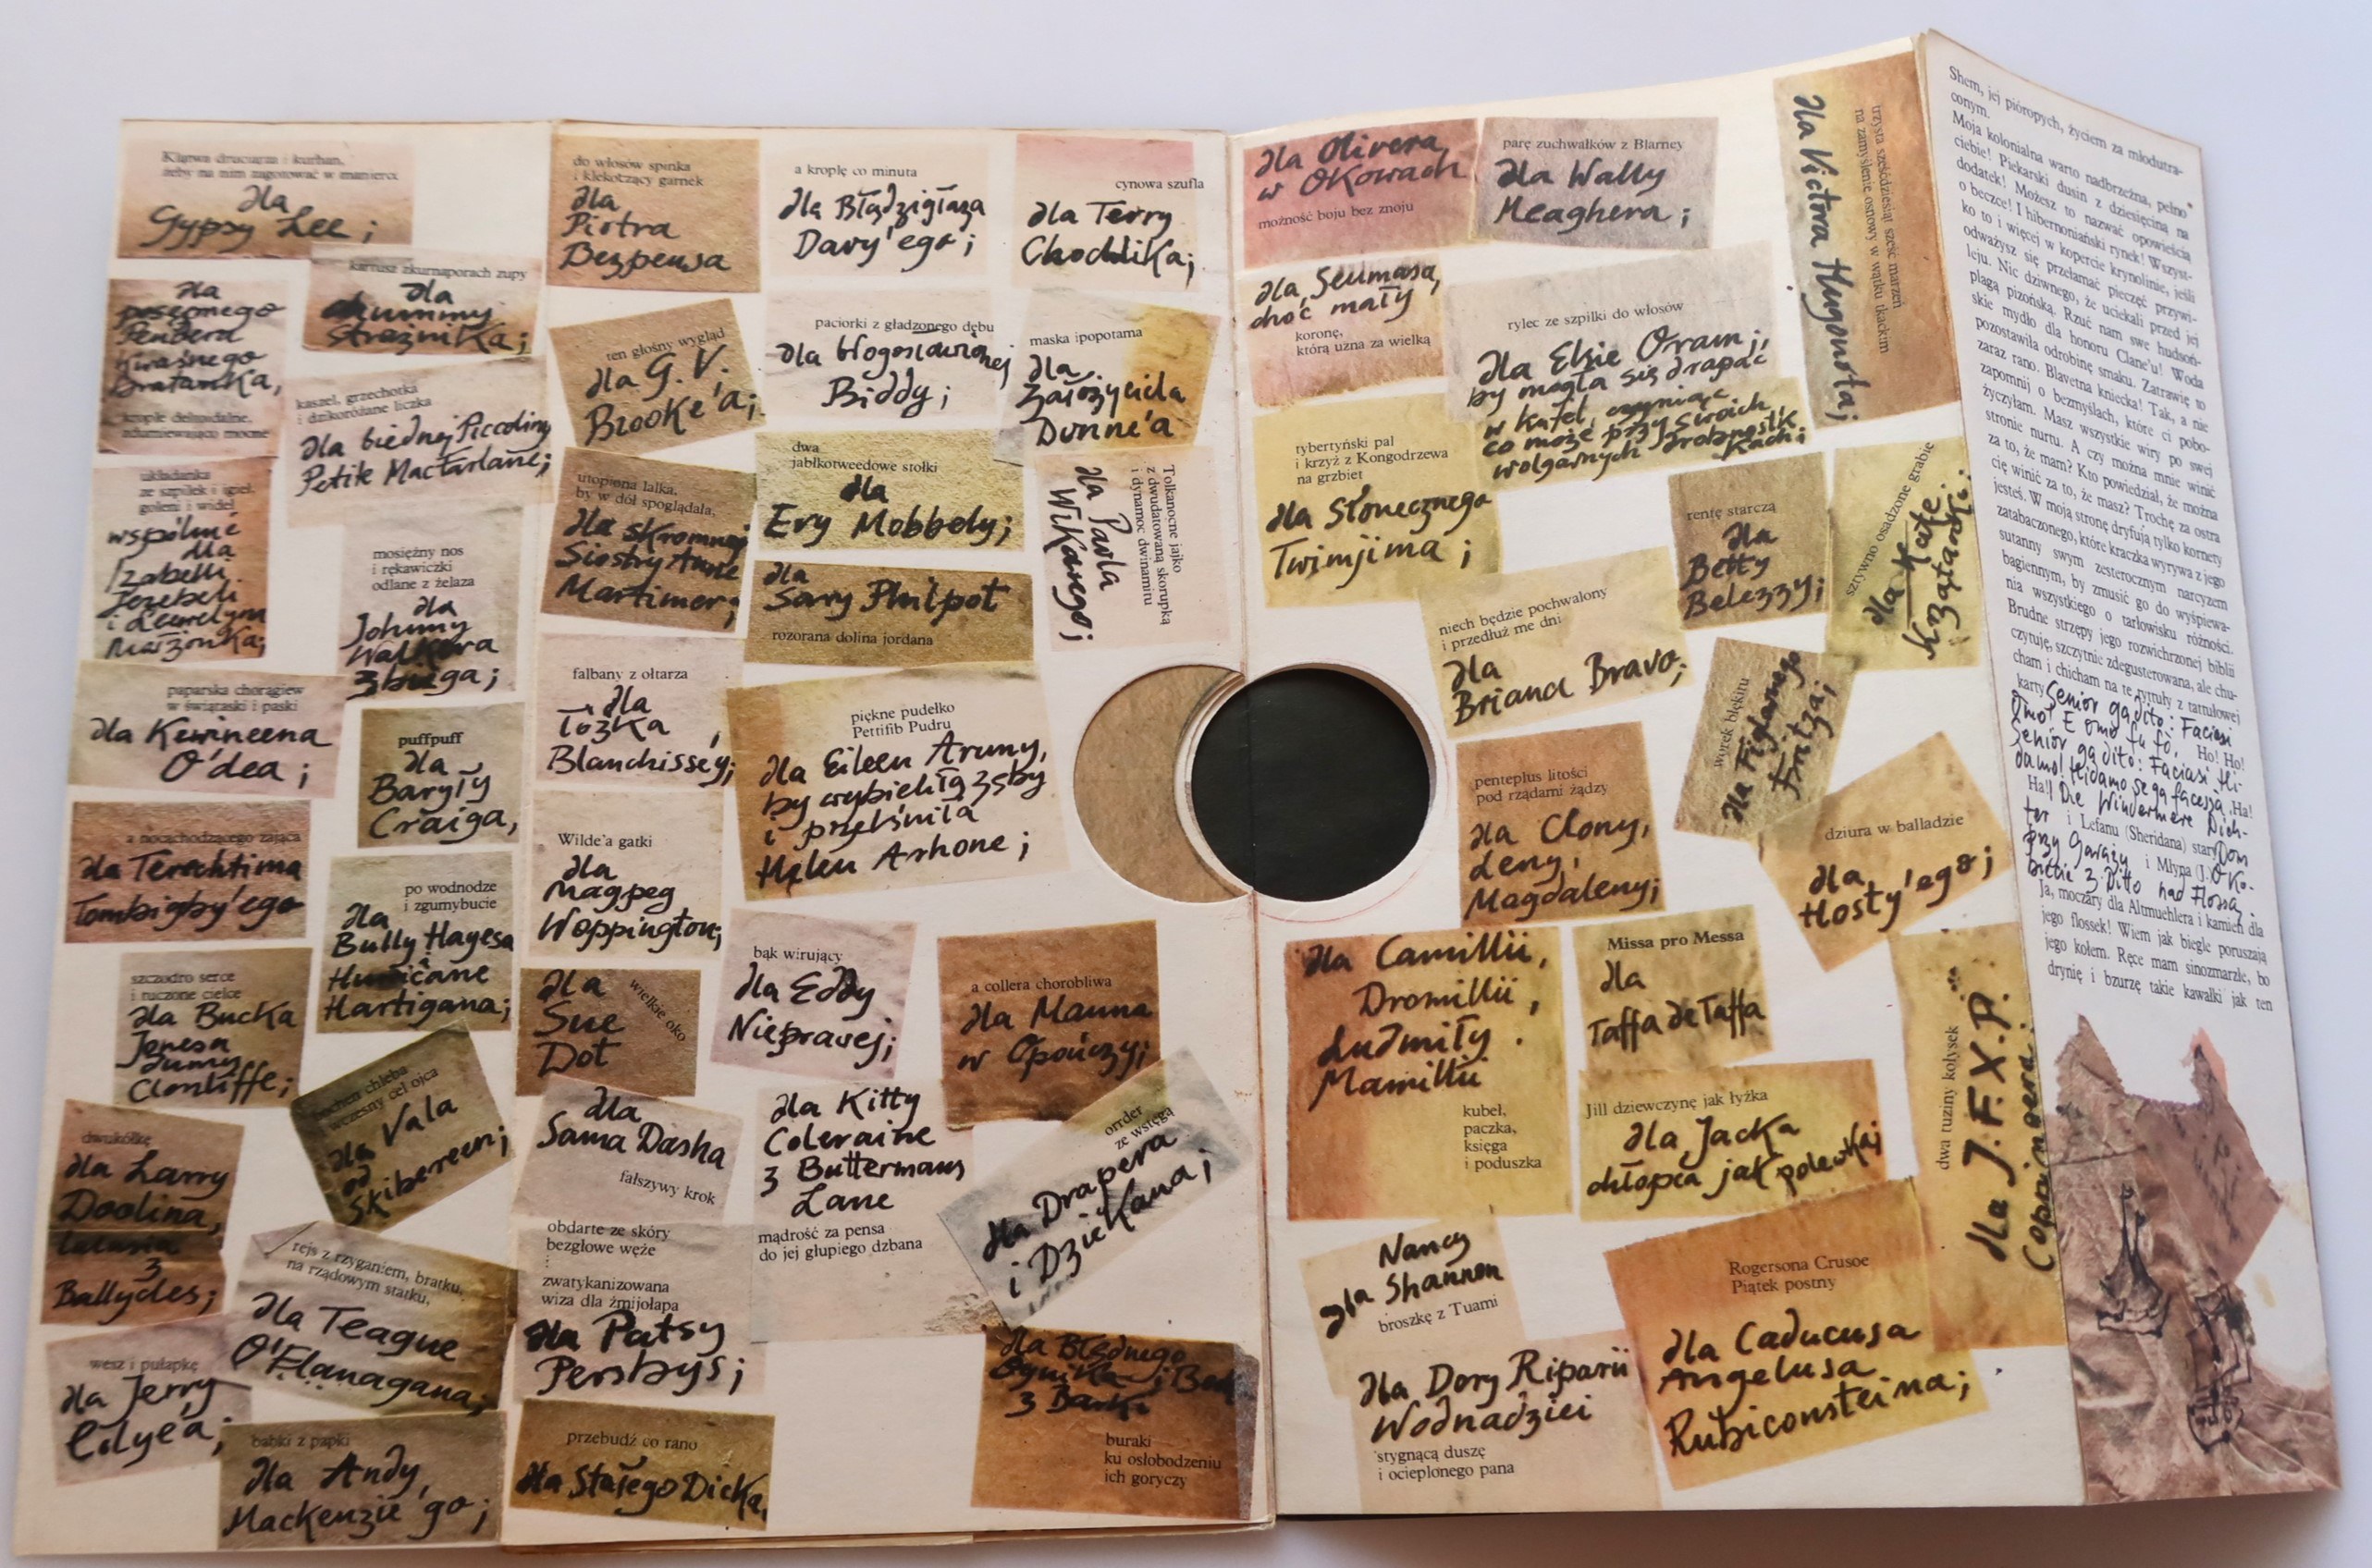 Klątwa druciarza i kurhan,
żeby na nim zagotować w manierce
dla
Gypsy Lee;
kartusz zkurnaporach zupy
dla
chummy
strażnika;
dla
posępnego
Pendera
Kwaśnego
Bratanka,
krople deltoidalne,
zdumiewająco mocne
kaszel, grzechotka
i dzikoróżane liczka
dla biednej Piccoliny
Petite MacFarlane;
układanka
ze szpilek i igieł,
goleni i wideł
wspólnie
dla
Izabelli
Jezebeli
i Llewelyna
Małżonka;
mosiężny nos
i rękawiczki
odlane z żelaza
dla
Johnny
Walkera
Zbiega;
paparska chorągiew
w świątaski i paski
dla Kewineena
O'dea;
puffpuff
dla
Baryły
Craiga,
a nocąchodzącego zająca
dla Terechtima
Tombigby'ego
po wodnodze
i zgumybucie
dla
Bully Hayesa
i
Hurricane
Hartigana;
szczodro serce
i tuczone cielce
dla Bucka
Jonesa
dumy
Clonliffe;
bochen chleba
wczesny cel ojca
dla Vala
od
Skibereen;
dwukółkę
dla Larry
Doolina,
z
Ballycles;
rejs z rzyganiem, bratku,
na rządowym statku,
dla Teague
O'Flanagana;
wesz i pułapkę
dla Jerry
Coyle'a;
babki z papki
dla Andy
Mackenzie'go;
do włosów spinka
i klekoczący garnek
dla
Piotra
Bezpensa
a kroplę co minuta
dla Błądzigłaza
Davy'ego;
cynowa szufla
dla Terry
Chochlika;
ten głośny wygląd
dla G. V.
Brooke'a;
paciorki z gładzonego dębu
dla błogosławionej
Biddy;
maska ipopotama
dla
Założyciela
Dunne'a
utopiona lalka,
by w dół spoglądała,
dla skromnej
Siostry Anne
Mortimer;
dwa
jabłkotweedowe stołki
dla
Evy Mobbely;
dla
Sary Philpot
rozorana dolina jordana
Tolkanocne jajko
z dwudatowaną skorupką
i dynamoc dwinamitu
dla Pawła
Wikarego;
falbany z ołtarza
dla
Łóżka
Blanchisse'y;
piękne pudełko
Pettifib Pudru
dla Eileen Aruny,
by wybieliła zęby
i prześniła
Helen Arhone;
Wilde'a gatki
dla
Magpeg
Woppington;
bąk wirujący
dla Eddy
Nieprawej;
wielkie oko
dla
Sue
Dot
a collera chorobliwa
dla Manna
w Opończy;
dla
Sama Dasha
fałszywy krok
dla Kitty
Coleraine
z Buttermans
Lane
mądrość za pensa
do jej głupiego dzbana
orrder
ze wstęgą
dla Drapera
i Dziekana;
obdarte ze skóry
bezgłowe węże
:
zwatykanizowana
wiza dla żmijołapa
dla Patsy
Persbys;
przebudź co rano
dla Stałego Dicka,
dla Błędnego
Ognika i
z Barki
buraki
ku osłobodzeniu
ich goryczy
dla Olivera
w Okowach
możność boju bez znoju
parę zuchwałków z Blarney
dla Wally
Meaghera;
trzysta sześćdziesiąt sześć marzeń
na zamyślenie osnowy w wątku tkackim
dla Victora Hugonota;
dla Seumasa,
choć mały
koronę,
którą uzna za wielką
rylec ze szpilki do włosów
dla Elsie Orram;
by mogła się drapać
w kafel, czyniąc
co może przy swoich
wolgarnych drobnostkach;
tybertyński pal
i krzyż z Kongodrzewa
na grzbiet
dla Słonecznego
Twimjima;
rentę starczą
dla
Betty
Belezzy;
sztywno osadzone grabie
dla
niech będzie pochwalony
i przedłuż me dni
dla
Briana Bravo;
worek błękitu
dla Figlarnego
Fritza;
penteplus litości
pod rządami żądzy
dla Clony,
Leny,
Magdaleny;
dziura w balladzie
dla
Hosty'ego;
dla Camillii,
Dromillii,
Ludmiły,
Mamillii
kubeł,
paczka,
księga
i poduszka
Missa pro Messa
dla
Taffa de Taffa
dwa tuziny kołysek
dla J.F.X.P.
Coppingera:
Jill dziewczynę jak łyżka
dla Jacka
chłopca jak polewka;
dla Nancy
Shannon
broszkę z Tuami
Rogersona Crusoe
Piątek postny
dla Caducusa
Angelusa
Rubiconsteina;
dla Dory Riparii
Wodnadziei
stygnącą duszę
i ocieplonego pana
Shem, jej pióropych, życiem za młodutra-
conym.
Moja kolonialna warto nadbrzeżna, pełno
ciebie! Piekarski dusin z dziesięciną na
dodatek! Możesz to nazwać opowieścią
o beczce! I hibernoniański rynek! Wszyst-
ko to i więcej w kopercie krynolinie, jeśli
odważysz się przełamać pieczęć przywi-
leju. Nic dziwnego, że uciekali przed jej
plagą pizońską. Rzuć nam swe hudsoń-
skie mydło dla honoru Clane'u! Woda
pozostawiła odrobinę smaku. Zatrawię to
zaraz rano. Blavetna kniecka! Tak, a nie
zapomnij o bezmyślach, które ci pobo-
życzyłam. Masz wszystkie wiry po swej
stronie nurtu. A czy można mnie winić
za to, że mam? Kto powiedział, że można
cię winić za to, że masz? Trochę za ostra
jesteś. W moją stronę dryfują tylko kornety
zatabaczonego, które kraczka wyrywa z jego
sutanny swym zesterocznym narcyzem
bagiennym, by zmusić go do wyśpiewa-
nia wszystkiego o tarłowisku różności.
Brudne strzępy jego rozwichrzonej biblii
czytuję, szczytnie zdegusterowana, ale chu-
cham i chicham na te tyttuły z tattułowej
karty Senior ga dito: Faciasi
Omo! E omo fu fò. Ho! Ho!
Senior ga dito: Faciasi Hi-
damo! Hidamo se ga facessà. Ha!
Ha! Die Windermere Dich-
ter i Lefanu (Sheridana) stary Dom
przy Garażu i Młyna (J.) O Ko-
biecie z Ditto nad Flossą.
Ja, moczary dla Altmuehlera i kamień dla
jego flossek! Wiem jak biegle poruszają
jego kołem. Ręce mam sinozmarzłe, bo
drynię i bzurzę takie kawałki jak ten